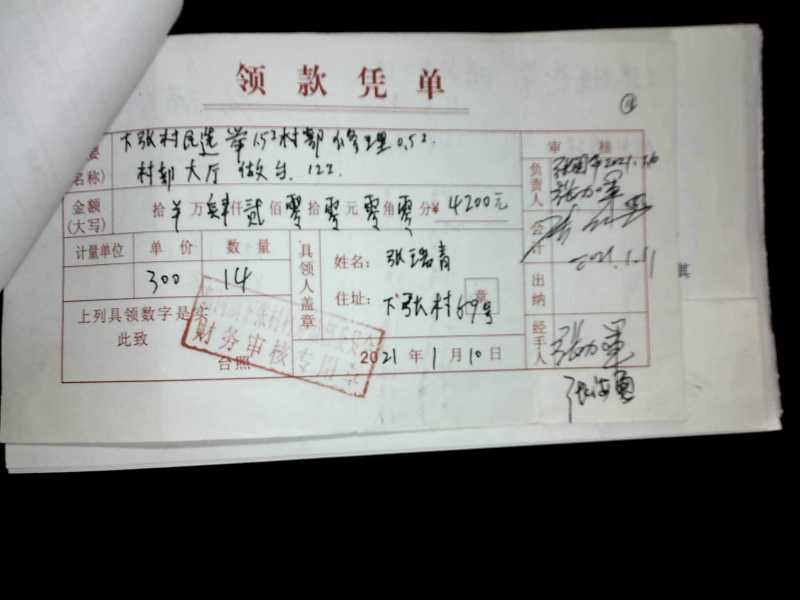 领款凭单
下张村民选举1.5工村部修理0.5工.
名称) 村部大厅做台. 12工.
金额 (大写) 拾 万 肆仟贰佰零拾零元零角零分¥ 4200元
计量单位 单价 数量
300 14
上列具领数字是实
此致
台照
具领人盖章
姓名: 张
住址: 下张村69号
章
2021年1月10日
财务审核专用章
审核
负责人
会计
2021.1.11
出纳
经手人
其